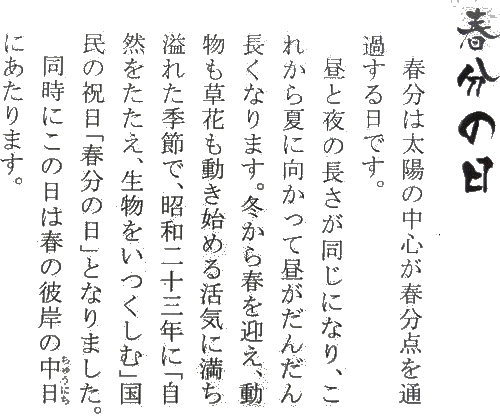 春分の日
春分は太陽の中心が春分点を通
過する日です。
昼と夜の長さが同じになり、こ
れから夏に向かって昼がだんだん
長くなります。冬から春を迎え、動
物も草花も動き始める活気に満ち
溢れた季節で、昭和二十三年に「自
然をたたえ、生物をいつくしむ」国
民の祝日「春分の日」となりました。
同時にこの日は春の彼岸の中日ちゅうにち
にあたります。